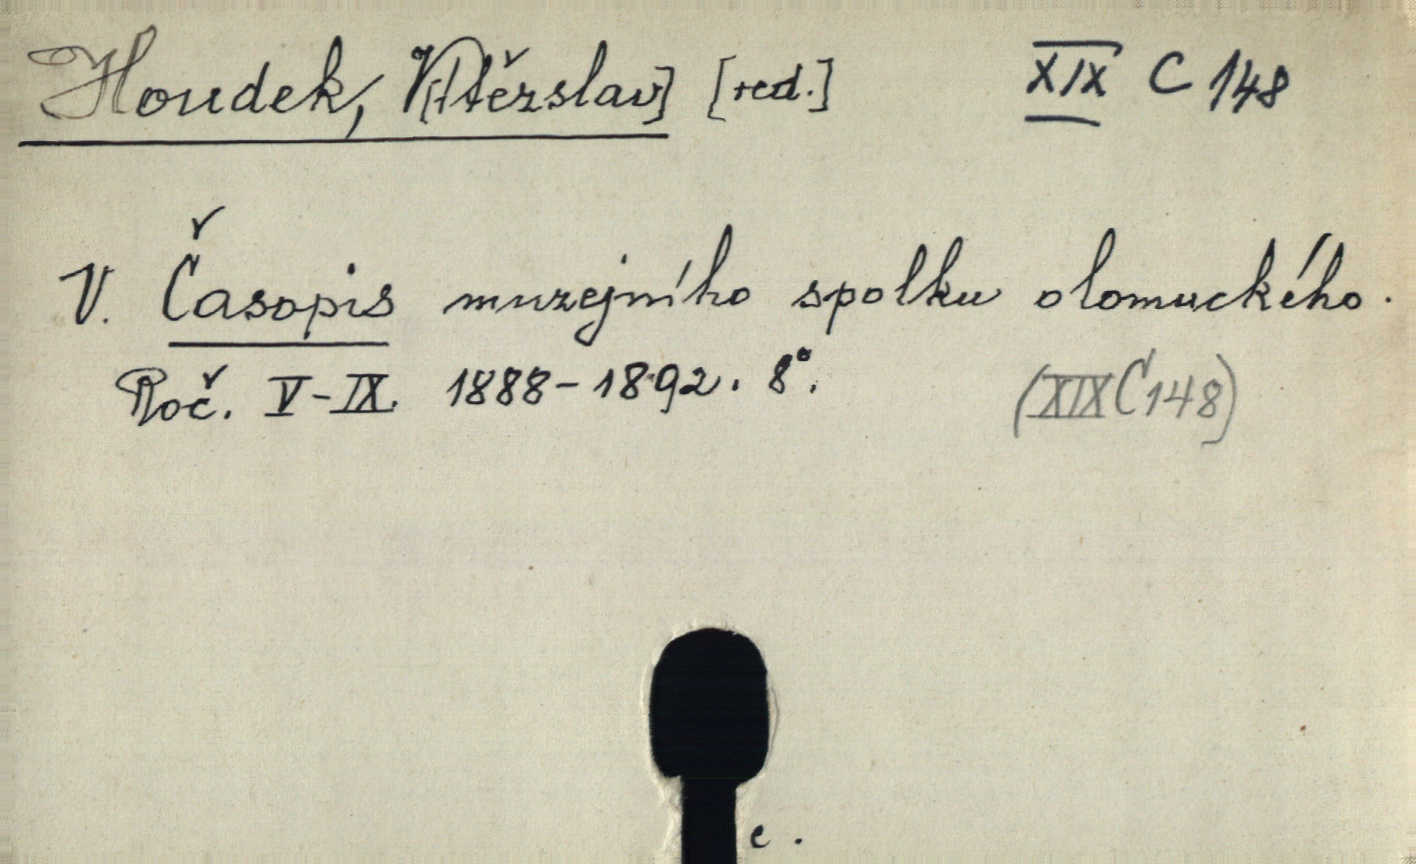 Houdek, V[ítězslav] [red.] XIX C 148
V. Časopis muzejního spolku olomuckého.
Roč. V-IX. 1888-1892. 8°. (XIX C 148)
c.